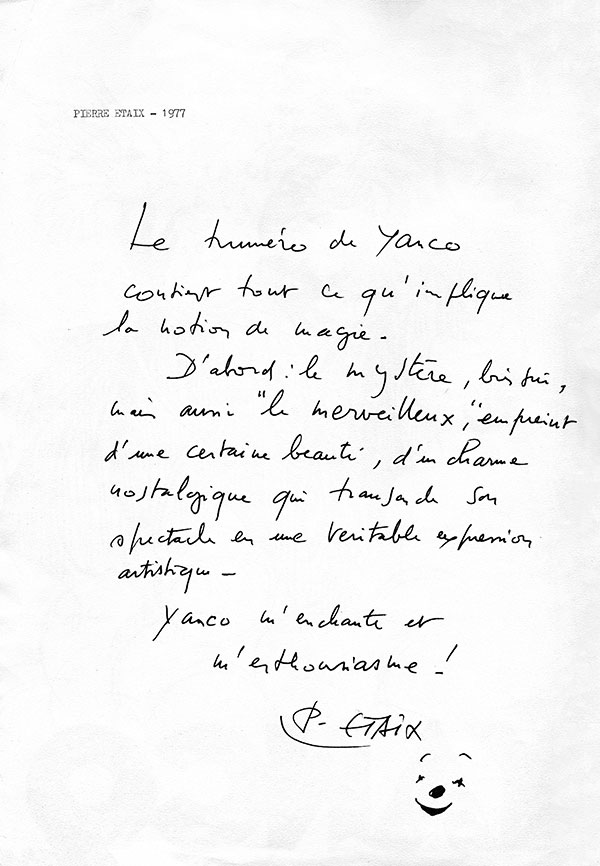 PIERRE ETAIX - 1977
Le numéro de Yanco
contient tout ce qu'implique
la notion de magie.
D'abord : le mystère, bien sûr,
mais aussi "le merveilleux", empreint
d'une certaine beauté, d'un charme
nostalgique qui son
spectacle en une véritable expression
artistique -
Yanco m'enchante et
m'enthousiasme !
P. ETAIX